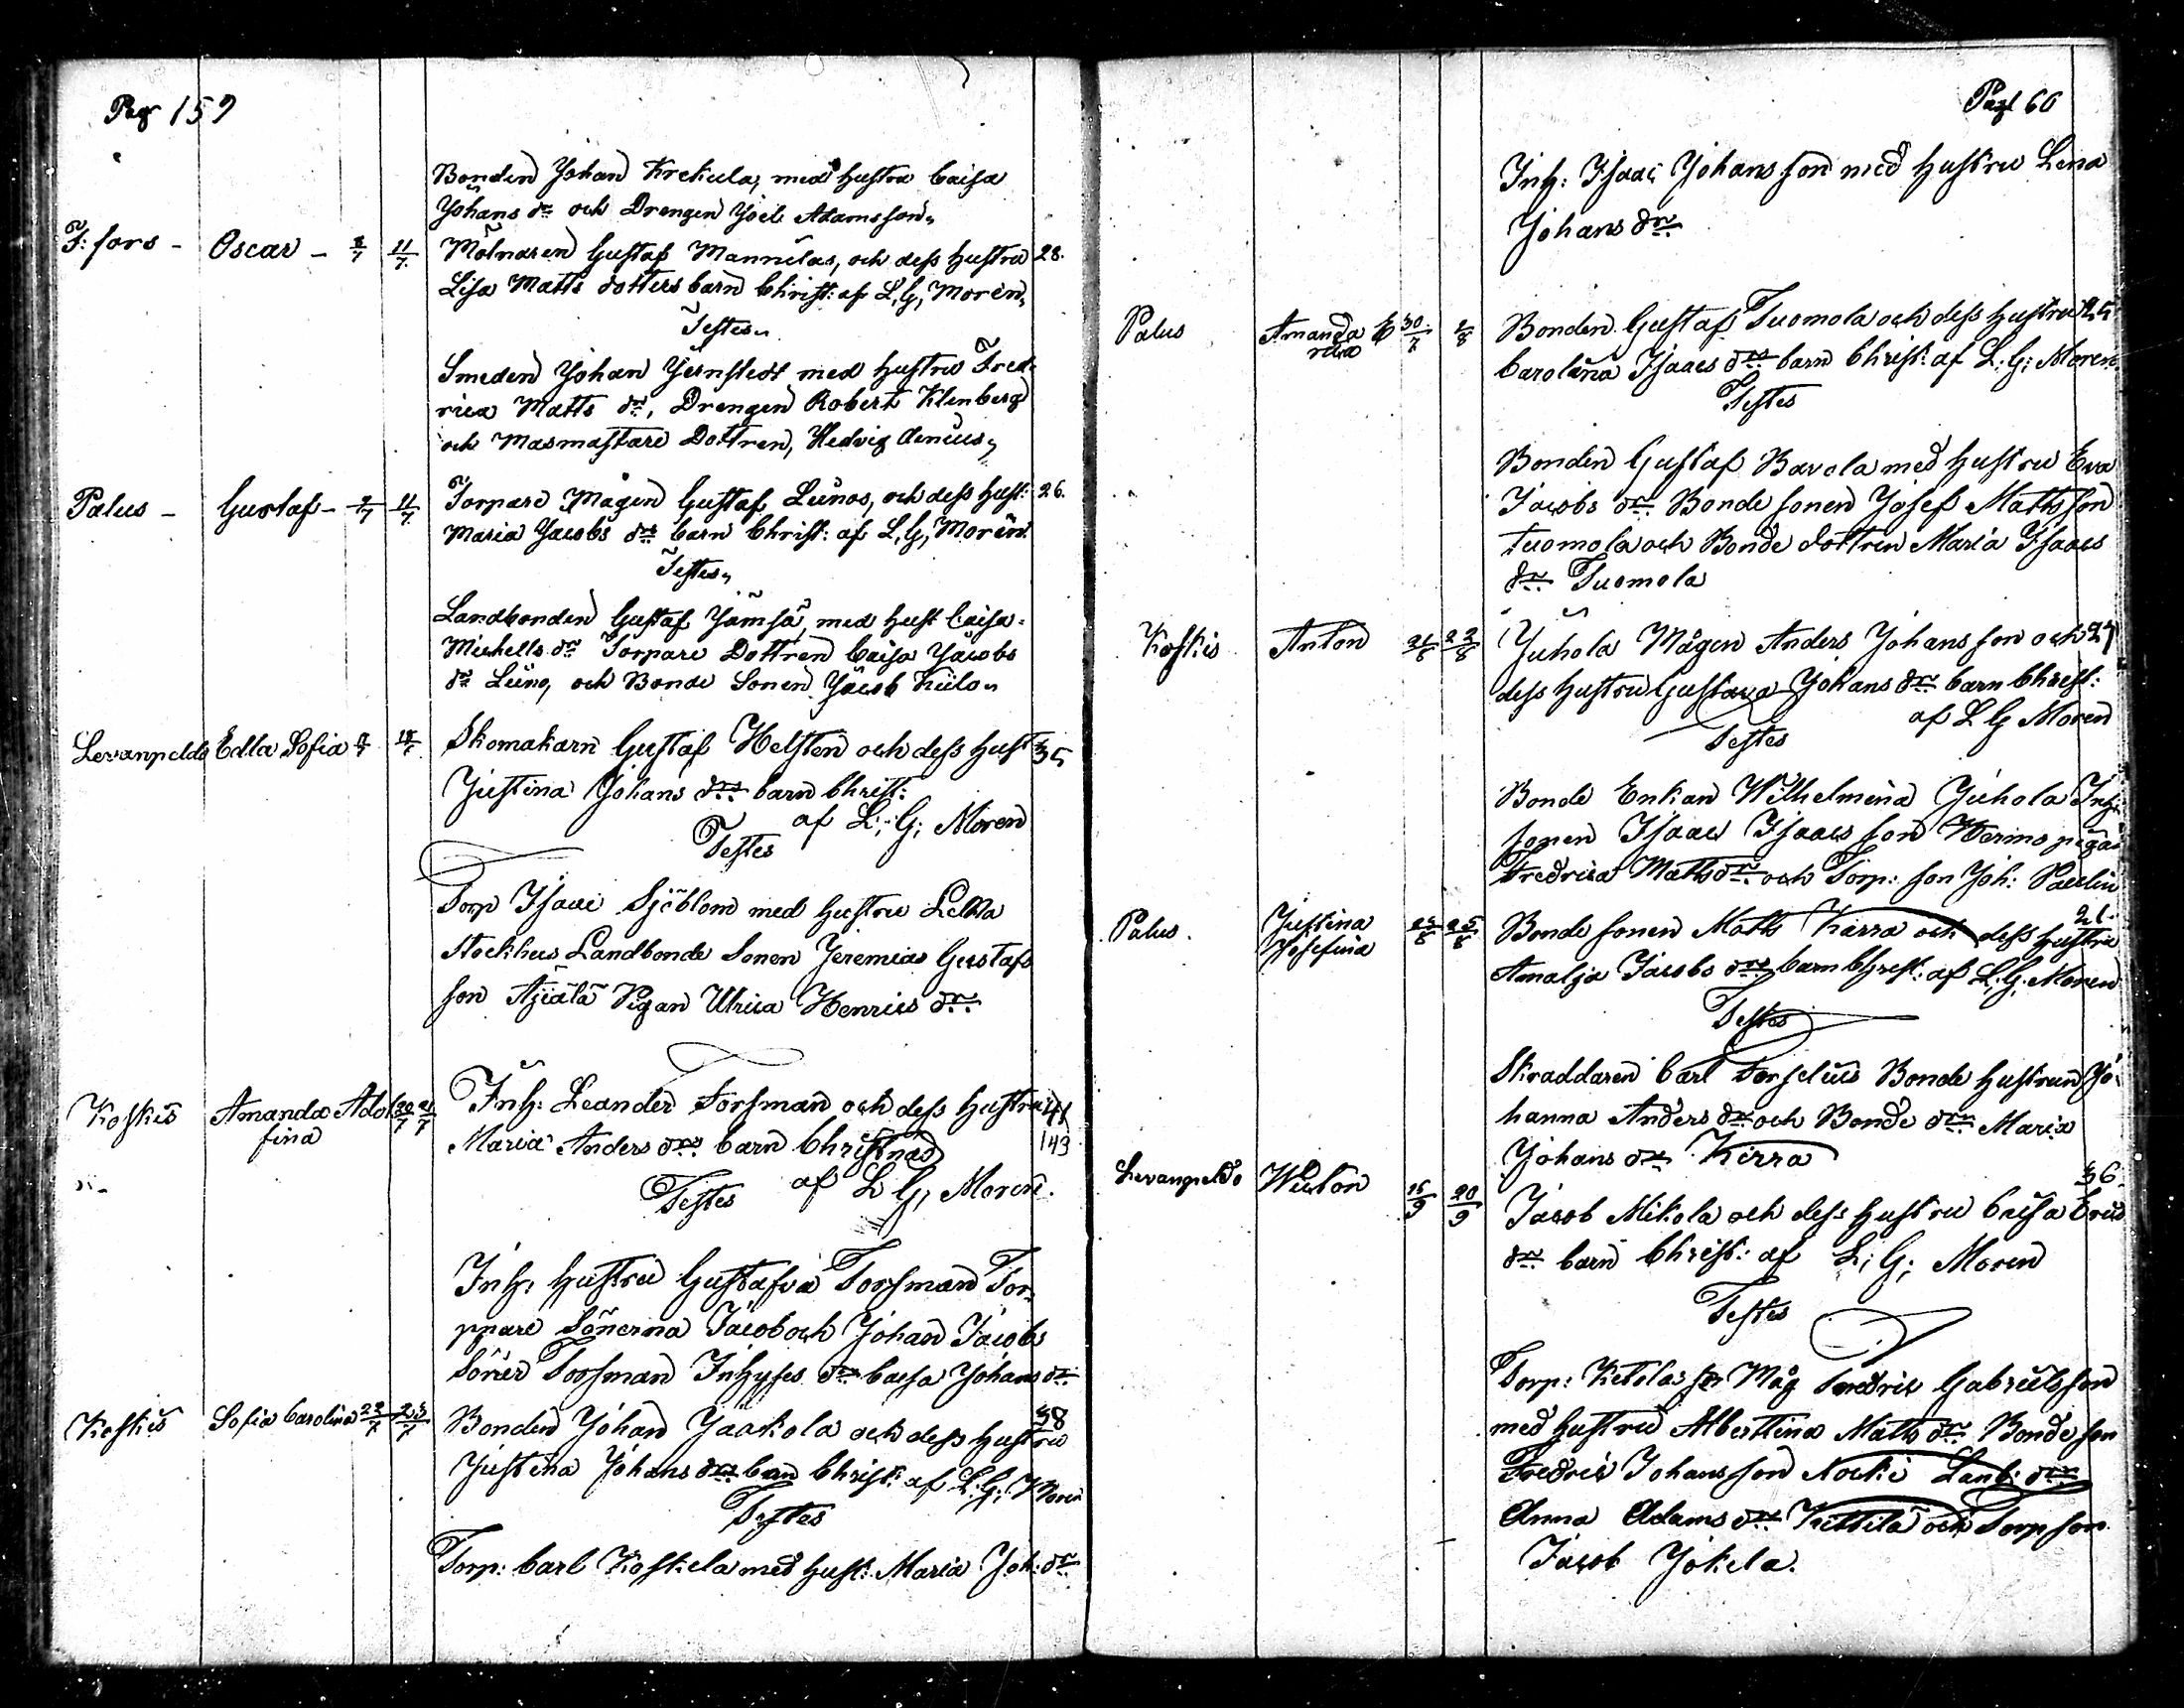 Pag 159
Bonden Johan Krekula, med hustru Caisa
Johans dr och Drengen Joel Adamsson
F: fors - Oscar - 8/7 11/7 Molnaren Gustaf Mannelas, och dess hustru 28.
Lisa Matts dotters barn Christ: af L, G, Morén,
Testes
Smeden Johan Jernstedt med hustru Fred-
rica Matts dr, Drengen Robert Klenberg
och Masmastare Dottren, Hedvig
Palus - Gustaf - 9/7 11/7 Torpare Mågen Gustaf Leinos, och dess hust: 26.
Maria Jacobs drs barn Christ: af L, G, Morén
Testes
Landbonden Gustaf Jämsä, med hust Caisa
Michells dr Torpare Dottren Caisa Jacobs
dr Leino, och Bonde Sonen Jacob
Levanpeldo Edla Sofia 18/7 Skomakarn Gustaf Helsten och dess hust 35
Justina Johans drs barn Christ:
af L; G; Moren
Testes
Torp Isaac Sjöblom med hustru
Stockhus Landbonde Sonen Jeremias Gustafs
son Äijälä Pigan Ulrica Henrics dr
Koskis Amanda Adol 20/7 21/7 Inh: Leander Forsman och dess hustru 41
fina Maria Anders drs barn Christnad 143
af L G, Moren.
Testes
Inh: hustru Gustafva Forsman Tor-
ppare Sönerna Jacob och Johan Jacobs
Söner Forsman Inhyses dr Caisa Johans dr
Koskis Sofia Carolina 22/7 23/7 Bonden Johan Jaakola och dess hustru 38
Justina Johans drs barn Christ: af L: G; Moren
Testes
Torp: Carl Koskela med hust: Maria Joh: dr
Pag 160
Inh: Isaac Johansson med hustru Lena
Johans dr
Palus Amanda 30/7 1/8 Bonden Gustaf Tuomola och dess hustru 25
Carolina Isaacs drs barn Christ: af L: G; Moren
Testes
Bonden Gustaf Bavola med hustru Eva
Jacobs dr Bonde sonen Josef Matts son
Tuomola och Bonde dottren Maria Isaacs
dr Tuomola
Koskis Anton 21/8 22/8 Juhola Mågen Anders Johans son och 27
dess hustru Gustava Johans drs barn Christ:
af L G Moren
Testes
Bonde Enkan Wilhelmina Juhola Inh:
sonen Isaac Isaacs son Hermo pigan
Fredrica Matts dr och Torp: son Joh: Paulin
21.
Palus. Justina 23/8 25/8 Bonde sonen Matts Kärra och dess hustru
Josefina Amalja Jacobs drs barn Christ: af L; G. Moren
Testes
Skraddaren Carl Torselius Bonde hustrun Jo-
hanna Anders dr och Bonde dr Maria
Johans dr Kirra
36.
Levanpeldo Wicton 15/9 20/9 Jacob Mikola och dess hustru Caisa Erics
dr barn Christ: af L; G; Moren
Testes
Torp: Ketolas Måg Fredric Gabriels son
med hustru Albertina Matts dr Bonde son
Fredric Johansson Nocki Lanb: dr
Anna Adams dr Kettilä och Torp son
Jacob Jokela.